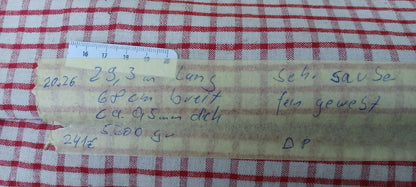 16 17 18 19 20
20.26 29,3 m lang
68 cm breit
ca. 0,5 mm dick
5500 gr
Sehr sauber
fein gewebt
DP